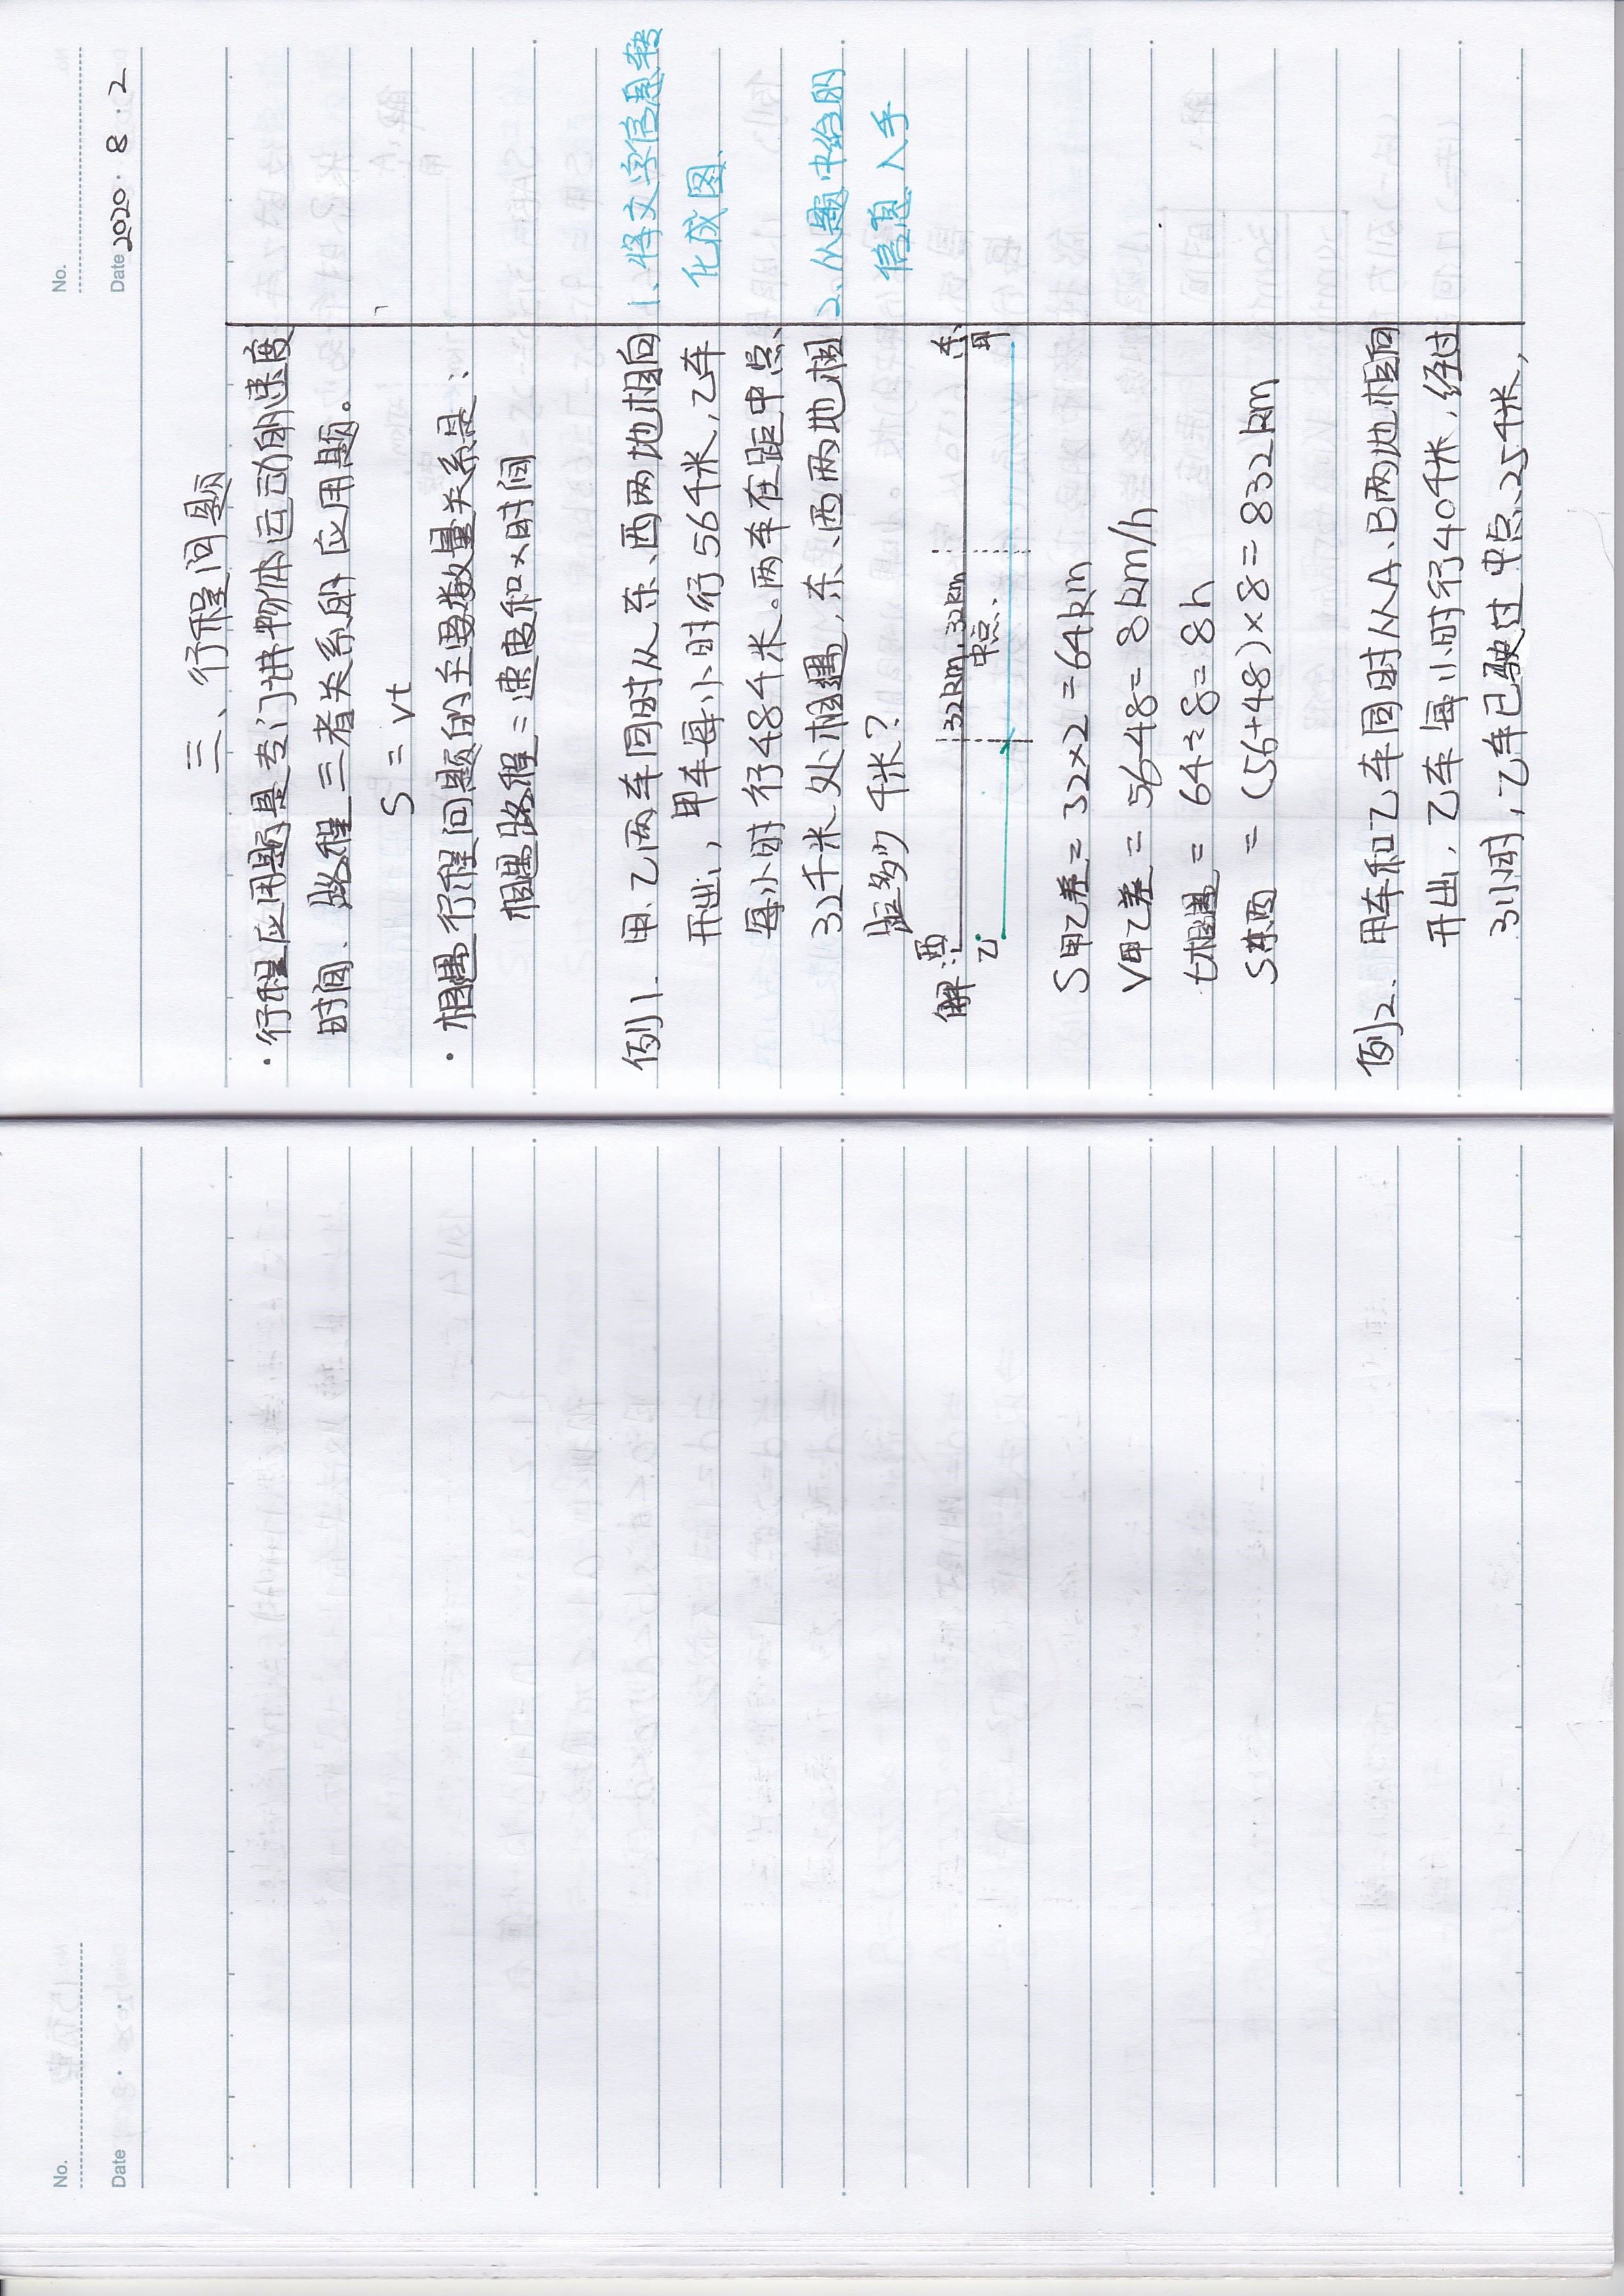 No.
Date 2020 · 8 · 2
三、行程问题
· 行程应用题是专门讲物体运动的速度
时间、路程三者关系的应用题。
S = vt
· 相遇行程问题的主要数量关系是：
相遇路程 = 速度和×时间
例1. 甲、乙两车同时从东、西两地相向
开出，甲车每小时行56千米，乙车
每小时行48千米。两车在距中点
32千米处相遇，东、西两地相
距多少千米？
1、将文字信息转
化成图.
2、从题中给的
信息入手
解：西 32km 32km 东
乙 中点 甲
S甲乙差 = 32×2 = 64km
V甲乙差 = 56-48 = 8km/h
t相遇 = 64÷8 = 8h
S东西 = (56+48)×8 = 832km
例2. 甲车和乙车同时从A、B两地相向
开出，乙车每小时行40千米，经过
3小时，乙车已驶过中点25千米，
No.
Date